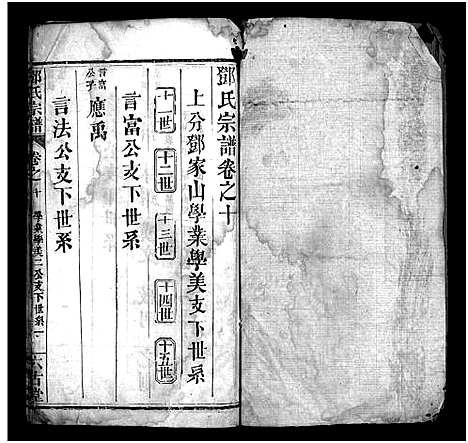 鄧氏宗譜卷之十
上分鄧家山學業學美支下世系
十一世 十二世 十三世 十四世 十五世
言富公支下世系
言富公子 應禹
言法公支下世系
鄧氏宗譜 卷之十 學業學美二公支下世系一